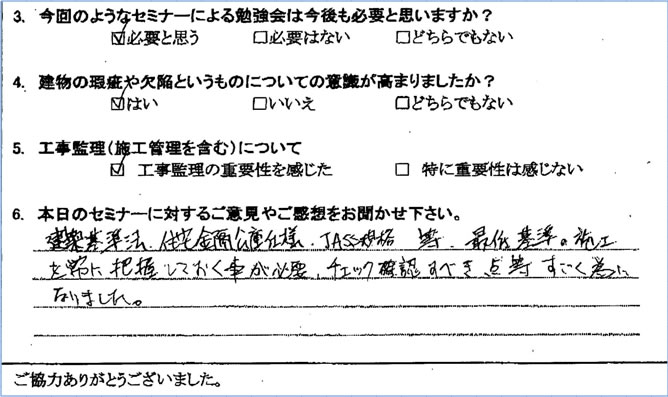 3. 今回のようなセミナーによる勉強会は今後も必要と思いますか？
☑必要と思う ☐必要はない ☐どちらでもない
4. 建物の瑕疵や欠陥というものについての意識が高まりましたか？
☑はい ☐いいえ ☐どちらでもない
5. 工事監理(施工管理を含む)について
☑ 工事監理の重要性を感じた ☐ 特に重要性は感じない
6. 本日のセミナーに対するご意見やご感想をお聞かせ下さい。
建築基準法、住宅金融公庫仕様、JASS規格 等、最低基準の施工
に把握しておく事が必要、チェック確認すべき点等 すごく為に
なりました。
ご協力ありがとうございました。